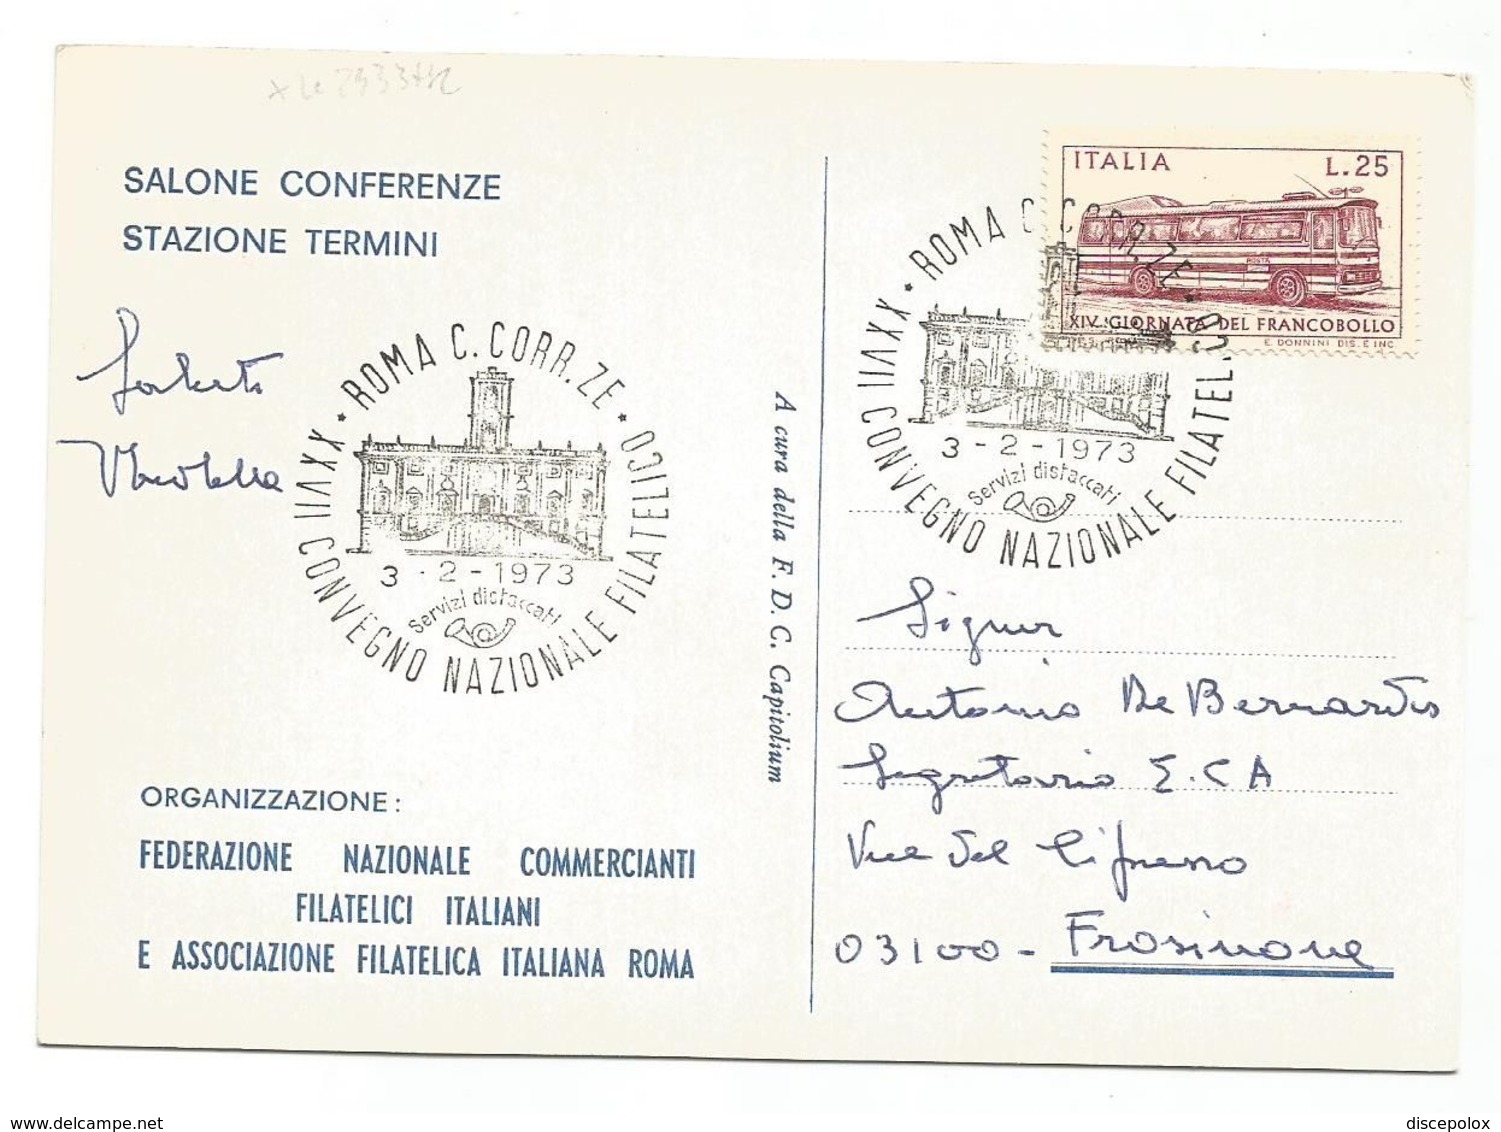 SALONE CONFERENZE
STAZIONE TERMINI
ROMA C. CORR.ZE
XXVII CONVEGNO NAZIONALE FILATELICO
3-2-1973
Servizi distaccati
ORGANIZZAZIONE:
FEDERAZIONE NAZIONALE COMMERCIANTI
FILATELICI ITALIANI
E ASSOCIAZIONE FILATELICA ITALIANA ROMA
A cura della F. D. C. Capitolium
ITALIA L.25
POSTA
XIV GIORNATA DEL FRANCOBOLLO
E. DONNINI DIS. E INC.
ROMA C. CORR.ZE
XXVII CONVEGNO NAZIONALE FILATELICO
3-2-1973
Servizi distaccati
Signor
Antonio De Bernardis
Segretario E.C A
Via del Cipresso
03100 - Frosinone
www.delcampe.net
discepolox